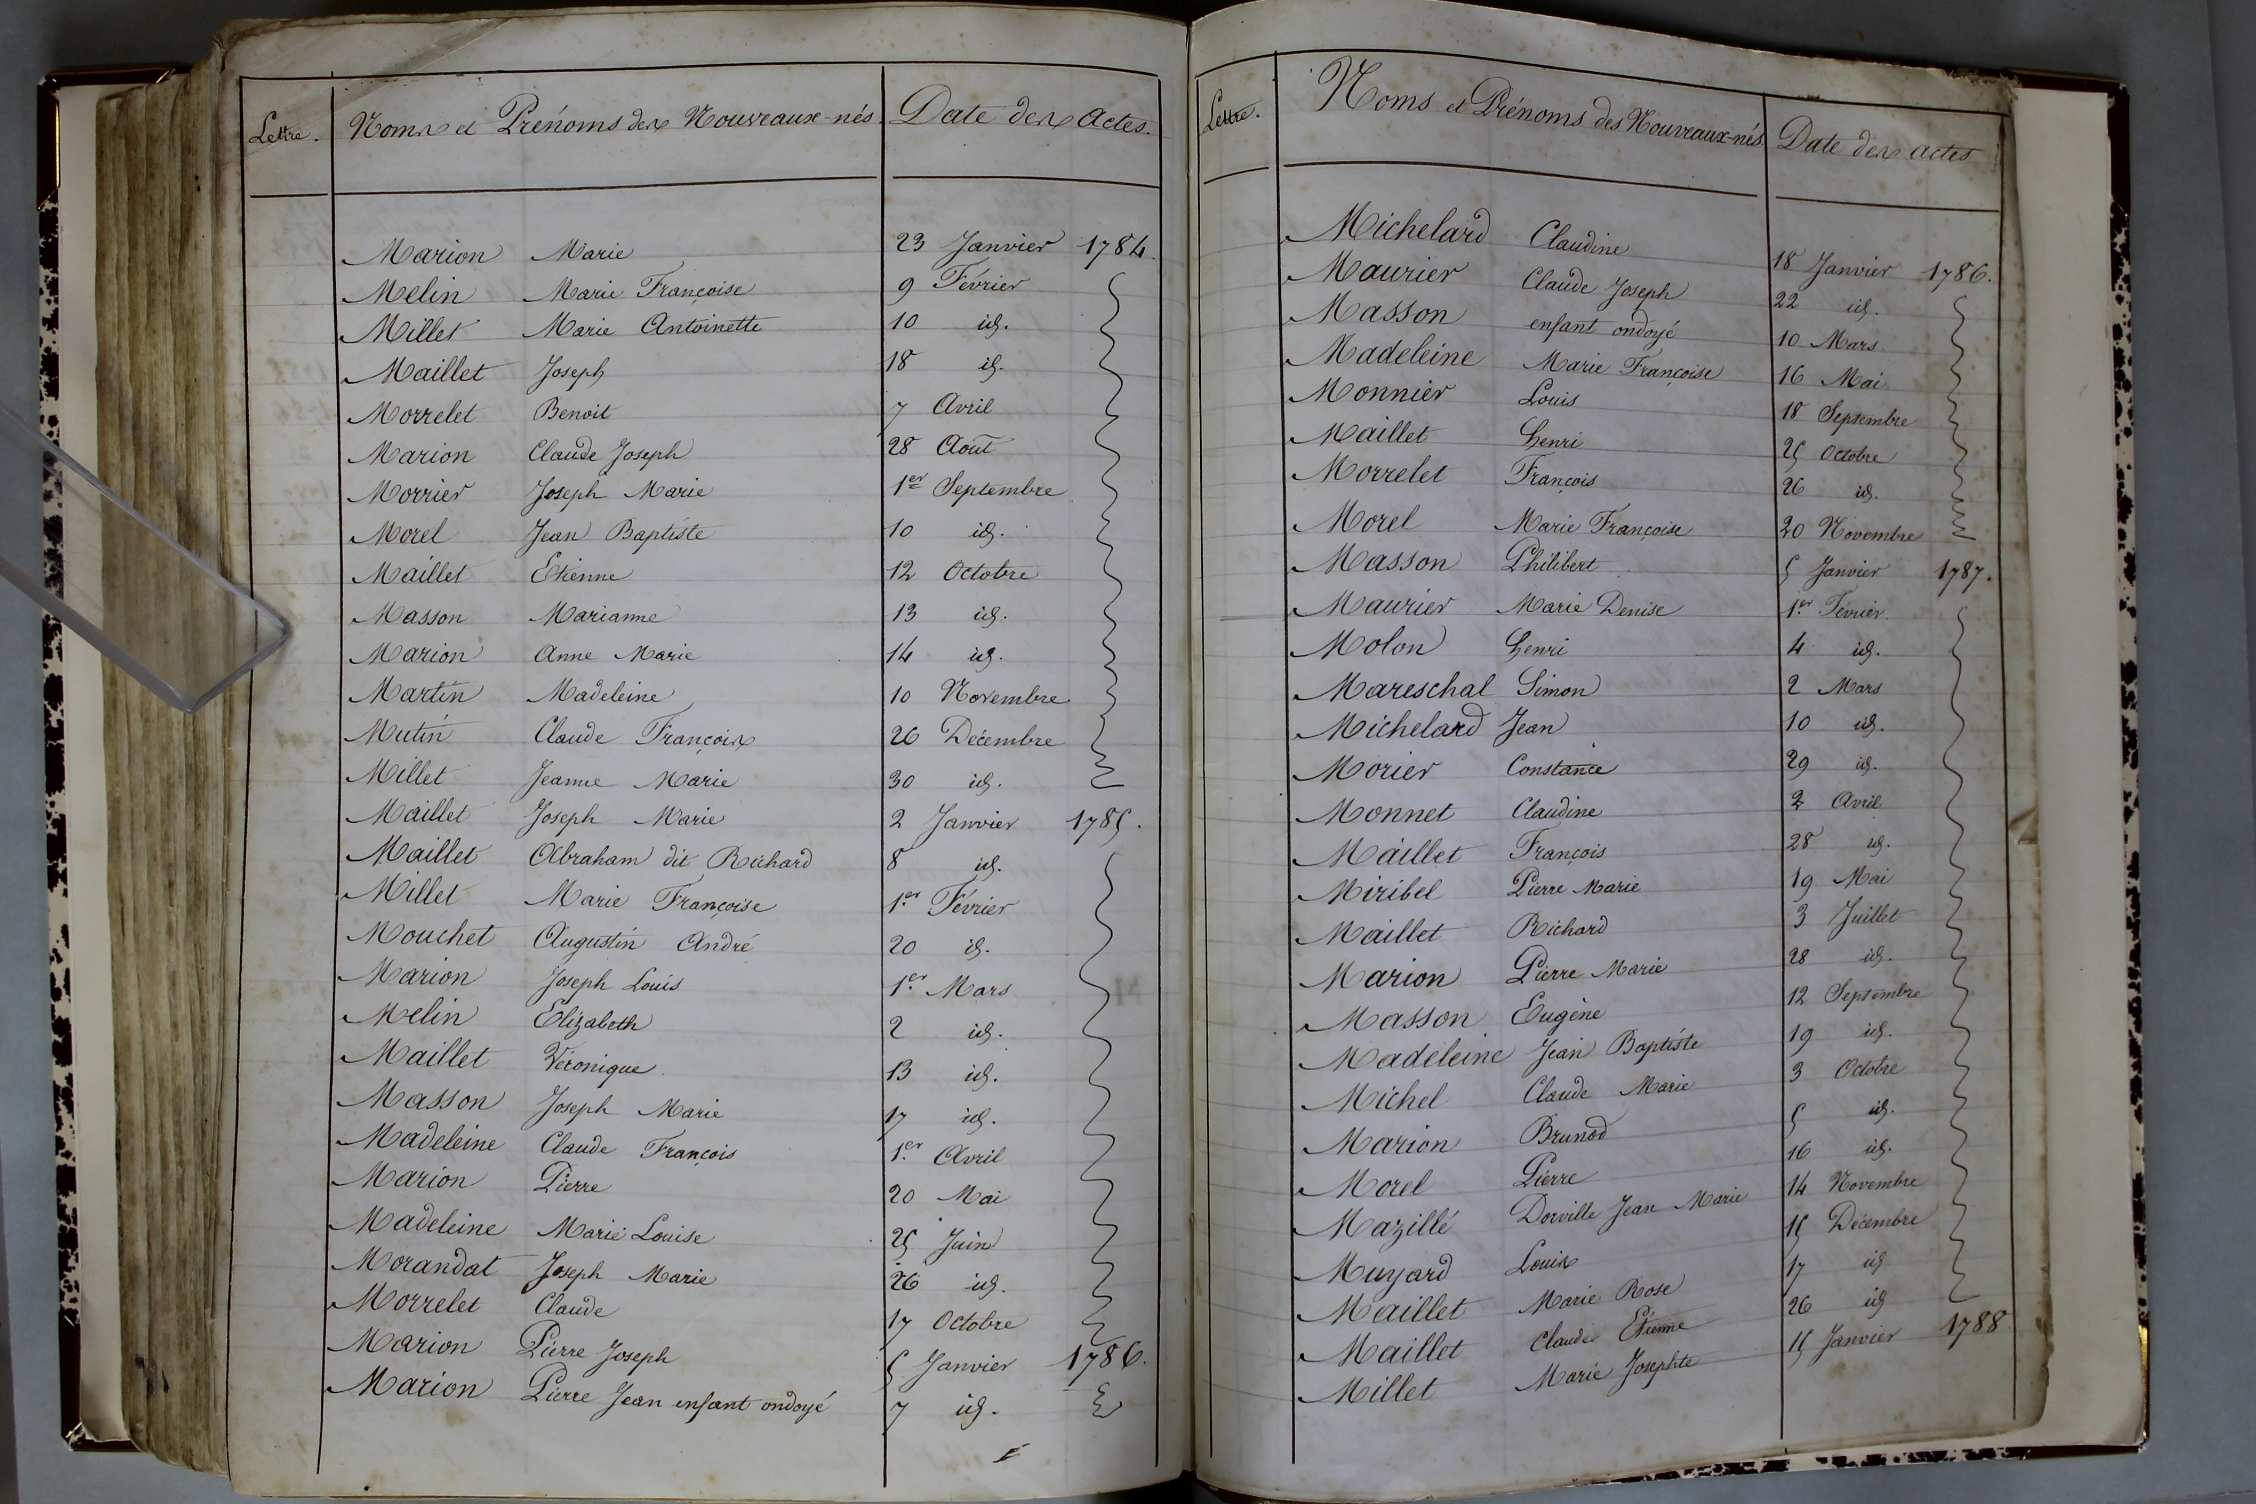 Lettre. Noms et Prénoms des Nouveaux-nés. Date des actes.
Marion Marie 23 Janvier 1784.
Melin Marie Françoise 9 Février
Millet Marie Antoinette 10 id.
Maillet Joseph 18 id.
Morrelet Benoit 7 Avril
Marion Claude Joseph 28 Août
Morrier Joseph Marie 1er Septembre
Morel Jean Baptiste 10 id.
Maillet Etienne 12 Octobre
Masson Marianne 13 id.
Marion Anne Marie 14 id.
Martin Madeleine 10 Novembre
Mutin Claude François 26 Décembre
Millet Jeanne Marie 30 id.
Maillet Joseph Marie 2 Janvier 1785.
Maillet Abraham dit Richard 8 id.
Millet Marie Françoise 1er Février
Mouchet Augustin André 20 id.
Marion Joseph Louis 1er Mars
Melin Elizabeth 2 id.
Maillet Véronique 13 id.
Masson Joseph Marie 17 id.
Madeleine Claude François 1er Avril
Marion Pierre 20 Mai
Madeleine Marie Louise 25 Juin
Morandat Joseph Marie 26 id.
Morrelet Claude 17 Octobre
Marion Pierre Joseph 5 Janvier 1786.
Marion Pierre Jean enfant ondoyé 7 id.
Lettre. Noms et Prénoms des Nouveaux-nés Date des actes
Michelard Claudine 18 Janvier 1786.
Maurier Claude Joseph 22 id.
Masson enfant ondoyé 10 Mars
Madeleine Marie Françoise 16 Mai
Monnier Louis 18 Septembre
Maillet Henri 25 Octobre
Morrelet François 26 id.
Morel Marie Françoise 20 Novembre
Masson Philibert 5 Janvier 1787.
Maurier Marie Denise 1er Février
Molon Henri 4 id.
Mareschal Simon 2 Mars
Michelard Jean 10 id.
Morier Constance 29 id.
Monnet Claudine 2 Avril
Maillet François 28 id.
Miribel Pierre Marie 19 Mai
Maillet Richard 3 Juillet
Marion Pierre Marie 28 id.
Masson Eugène 12 Septembre
Madeleine Jean Baptiste 19 id.
Michel Claude Marie 3 Octobre
Marion Brunod 5 id.
Morel Pierre 16 id.
Mazillé Dorville Jean Marie 14 Novembre
Muyard Louis 15 Décembre
Maillet Marie Rose 17 id
Maillet Claude Etienne 26 id
Millet Marie Josephte 15 Janvier 1788